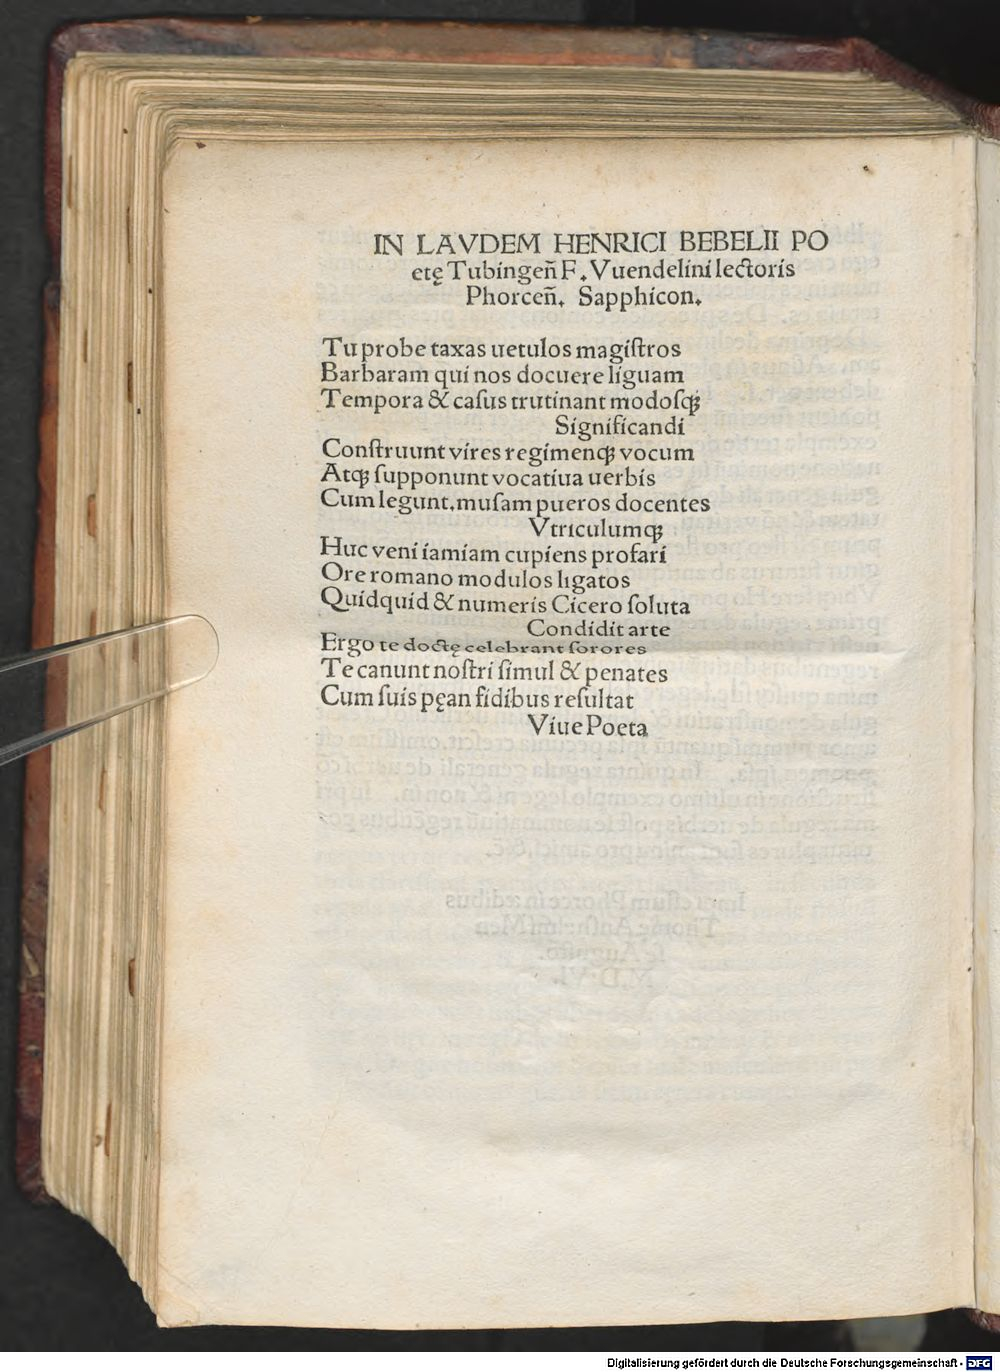 IN LAVDEM HENRICI BEBELII PO
etę Tubingen̄ F. Vuendelini lectoris
Phorcen̄. Sapphicon.
Tu probe taxas uetulos magiſtros
Barbaram qui nos docuere liguam
Tempora & caſus trutinant modoſqꝫ
Significandi
Conſtruunt vires regimenqꝫ vocum
Atqꝫ ſupponunt vocatiua uerbis
Cum legunt. muſam pueros docentes
Vtriculumqꝫ
Huc veni iamiam cupiens profari
Ore romano modulos ligatos
Quidquid & numeris Cicero ſoluta
Condidit arte
Ergo te doctę celebrant ſorores
Te canunt noſtri ſimul & penates
Cum ſuis pęan fidibus reſultat
Viue Poeta
Digitalisierung gefördert durch die Deutsche Forschungsgemeinschaft - DFG